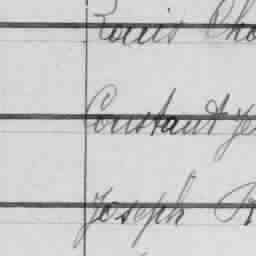 Louis Cho
Constant Je
Joseph